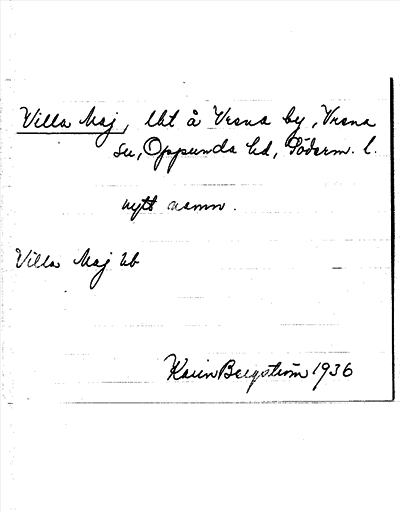 Villa Maj, lht å Vrena by, Vrena
sn, Oppunda hd, Söderm. l.
nytt namn.
Villa Maj Ub
Karin Bergström 1936